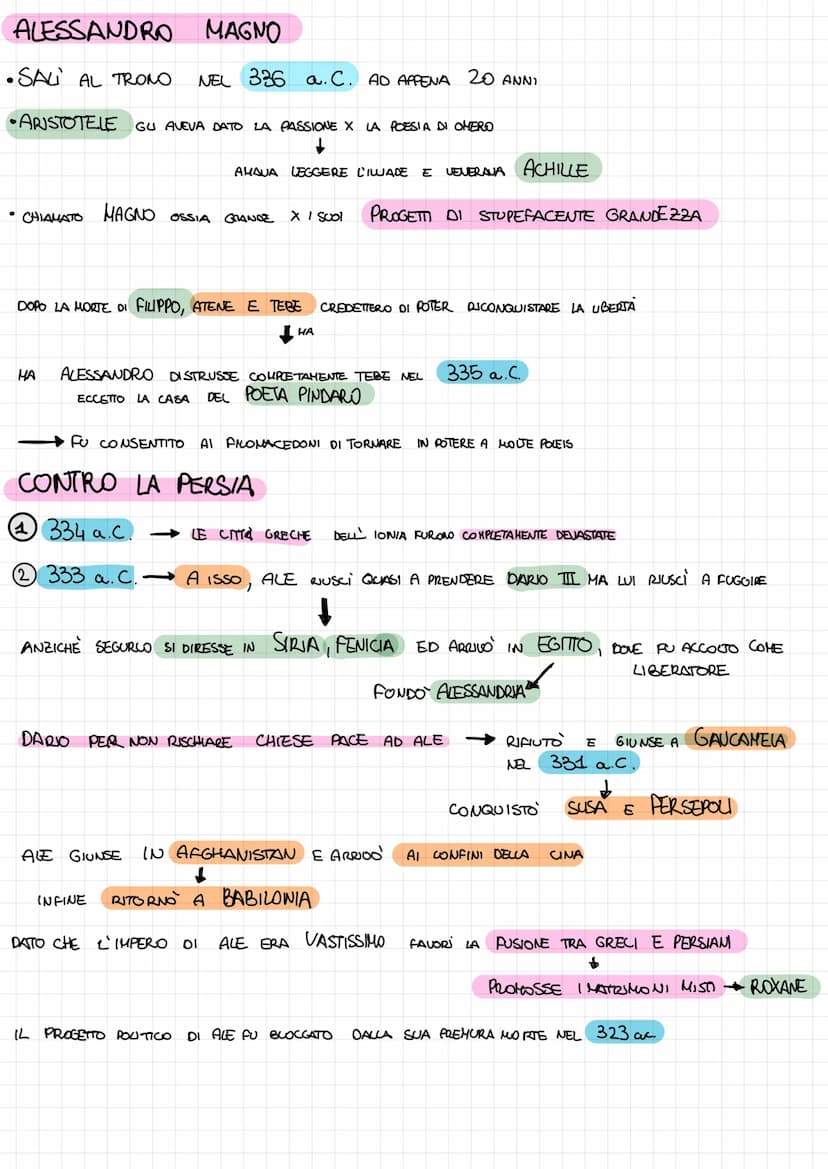 ALESSANDRO MAGNO
• SALÌ AL TRONO NEL 336 a.C. AD APPENA 20 ANNI
• ARISTOTELE GLI AVEVA DATO LA PASSIONE X LA POESIA DI OMERO
↓
AMAVA LEGGERE L'ILIADE E VENERAVA ACHILLE
• CHIAMATO MAGNO OSSIA GRANDE X I SUOI PROGETTI DI STUPEFACENTE GRANDEZZA
DOPO LA MORTE DI FILIPPO, ATENE E TEBE CREDETTERO DI POTER RICONQUISTARE LA LIBERTÀ
↓ MA
MA ALESSANDRO DISTRUSSE COMPLETAMENTE TEBE NEL 335 a.C.
ECCETTO LA CASA DEL POETA PINDARO
→ FU CONSENTITO AI FILOMACEDONI DI TORNARE IN POTERE A MOLTE POLEIS
CONTRO LA PERSIA
1 334 a.C. → LE CITTÀ GRECHE DELL' IONIA FURONO COMPLETAMENTE DEVASTATE
2 333 a.C. → A ISSO, ALE RIUSCÌ QUASI A PRENDERE DARIO III MA LUI RIUSCÌ A FUGGIRE
↓
ANZICHÈ SEGUIRLO SI DIRESSE IN SIRIA, FENICIA ED ARRIVÒ IN EGITTO, DOVE FU ACCOLTO COME
LIBERATORE
FONDÒ ALESSANDRIA
DARIO PER NON RISCHIARE CHIESE PACE AD ALE → RIFIUTÒ E GIUNSE A GAUGAMELA
NEL 331 a.C.
↓
CONQUISTÒ SUSA E PERSEPOLI
ALE GIUNSE IN AFGHANISTAN E ARRIVÒ AI CONFINI DELLA CINA
↓
INFINE RITORNÒ A BABILONIA
DATO CHE L'IMPERO DI ALE ERA VASTISSIMO FAVORÌ LA FUSIONE TRA GRECI E PERSIANI
↓
PROMOSSE I MATRIMONI MISTI → ROXANE
IL PROGETTO POLITICO DI ALE FU BLOCCATO DALLA SUA PREMURA MORTE NEL 323 ac